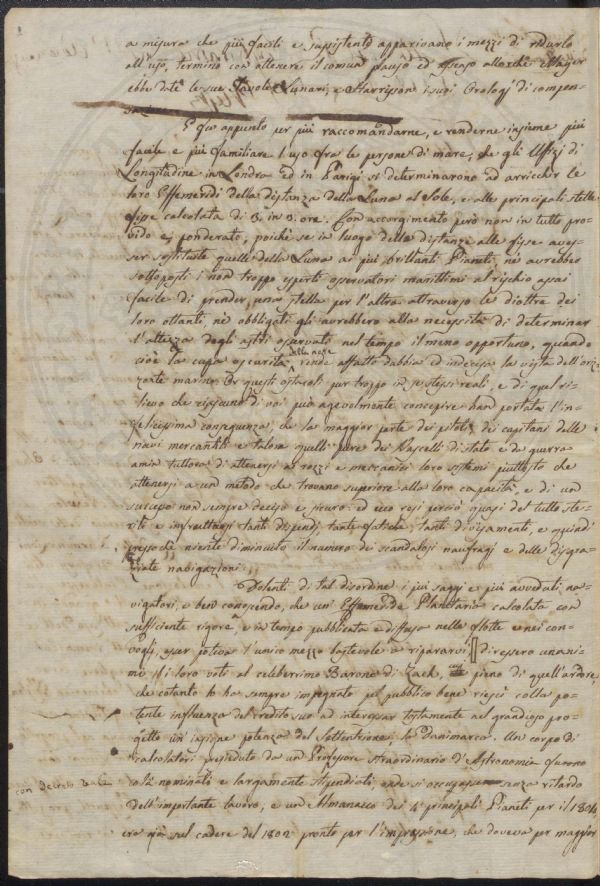 a misura che più facili e sussistenti apparivano i mezzi di ridurlo
all'uso, termino con ottenere il comun plauso ed
ebbe date le sue Tavole Lunari, e Harrisson i suoi Orologj di compen-
E fu appunto per più raccomandarne, e renderne insieme più
facile e più familiare l'uso fra le persone di mare, che gli Uffizi di
Longitudine in Londra ed in Parigi si determinarono ad arricchir le
loro Effemeridi della distanza della Luna al Sole, e alle principali stelle
fisse calcolata di 3 in 3 ore. Con accorgimento però non in tutto pro-
vido e ponderato, poichè se in luogo delle distanze alle fisse aves-
ser sostituite quelle della Luna ai più brillanti Pianeti, nè avrebbero
sottoposti i non troppo esperti osservatori marittimi al rischio assai
facile di prender una stella per l'altra attraverso le diottre dei
loro ottanti, nè obbligati gli avrebbero alla necessità di determinar
l'altezza degli astri osservati nel tempo il meno opportuno, quando
cioè la cupa oscurità della notte rende affatto dubbia ed indecisa la vista dell'oriz-
zonte marino. Or questi ostacoli pur troppo in se stessi reali, e di quel ri-
lievo che ciascuno di voi può agevolmente concepire han portata l'in-
felicissima conseguenza, che la maggior parte dei piloti, dei capitani delle
navi mercantili e talora quelli pure dei Vascelli di stato e da guerra
amin tuttora di attenersi ai rozzi e meccanici loro sistemi piuttosto che
attenersi a un metodo che trovano superiore alla loro capacità, e di un
successo non sempre deciso e sicuro: ed ecco resi perciò quasi del tutto ste-
rili e infruttuosi tanti dispendj, tante fatiche, tanti divisamenti, e quindi
pressochè niente diminuito il numero dei scandalosi naufragi e delle disgra-
ziate navigazioni.
Dolenti di tal disordine i più saggi e più avveduti na-
vigatori, e ben conoscendo, che un' Effemeride Planetaria calcolata con
sufficiente rigore, e in tempo pubblicata e diffusa nelle flotte e nei con-
vogli, esser poteva l'unico mezzo bastevole a ripararvi, diressero unani-
mi i loro voti al celeberrimo Barone di Zach, pieno di quell'ardore,
che cotanto lo ha sempre impegnato pel pubblico bene riescì colla po-
tente influenza del credito suo ad interessar tostamente nel grandioso pro-
getto un' insigne potenza del Settentrione, la Danimarca. Un corpo di
calcolatori preseduto da un Professore straordinario d'Astronomia furono
con Decreto Reale
colà nominati e largamente stipendiati, onde si occupassero senza ritardo
dell'importante lavoro, e un Almanacco dei 4 principali Pianeti per il 1804
era già sul cadere del 1802 pronto per l'impressione, che doveva per maggior